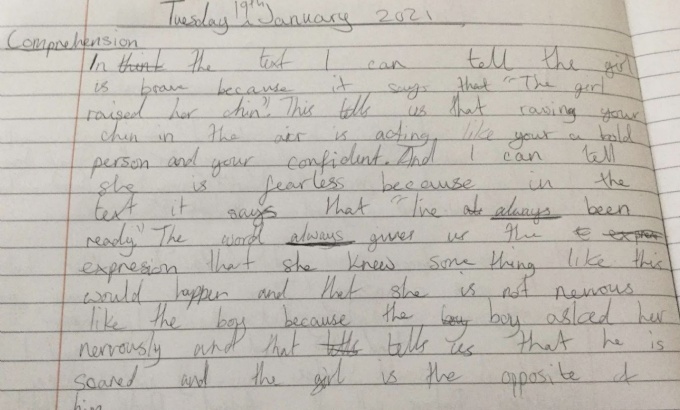 Tuesday 19th January 2021
Comprehension
In think the text I can tell the girl
is brave because it says that "The girl
raised her chin". This tells us that raving your
chin in the air is acting like your a bold
person and your confident. And I can tell
she is fearless because in the
text it says that "I've always been
ready" The word always gives us the
expresion that she knew some thing like this
would happen and that she is not nervous
like the boy because the boy asked her
nervously and that tells us that he is
scared and the girl is the opposite of
him